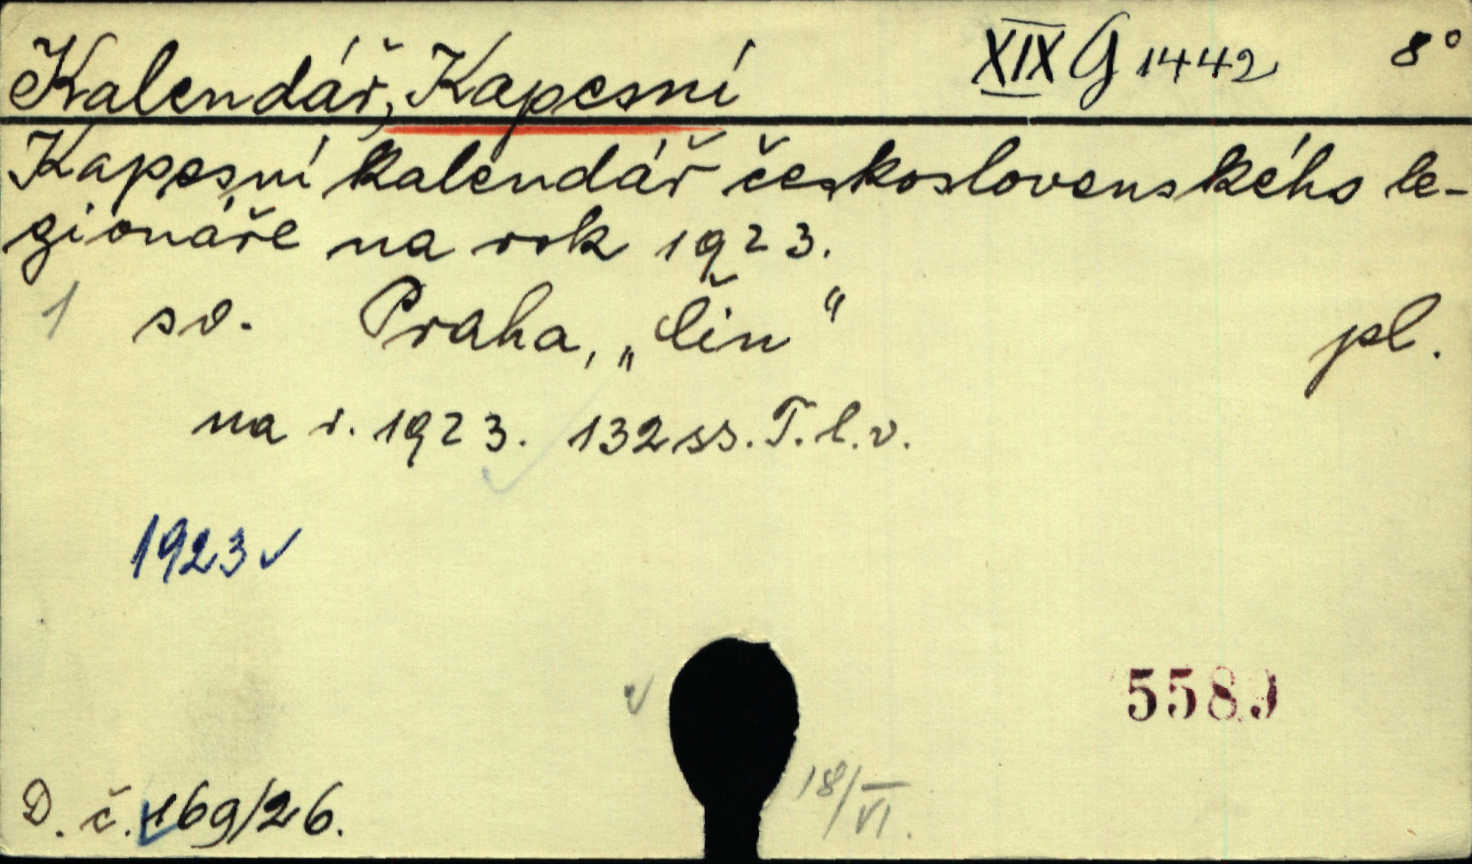 Kalendář, Kapesní XIX G 1442 8°
Kapesní kalendář československého le-
gionáře na rok 1923.
1 sv. Praha, „Čin“ pl.
na r. 1923. 132 ss. T. l. v.
1923 ✓
5589
18/VI.
D. č. 169/26.